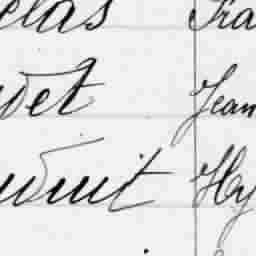 elas Fra
det Jean
duit Hy